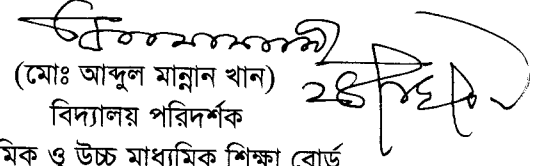 (মোঃ আব্দুল মান্নান খান)
বিদ্যালয় পরিদর্শক
মিক ও উচ্চ মাধ্যমিক শিক্ষা বোর্ড